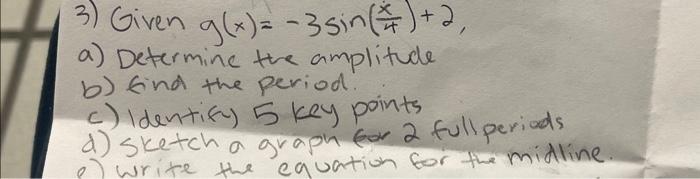 3) Given g(x)= -3sin(x/4)+2,
a) Determine the amplitude
b) find the period.
c) Identify 5 key points
d) sketch a graph for 2 full periods
e) write the equation for the midline.